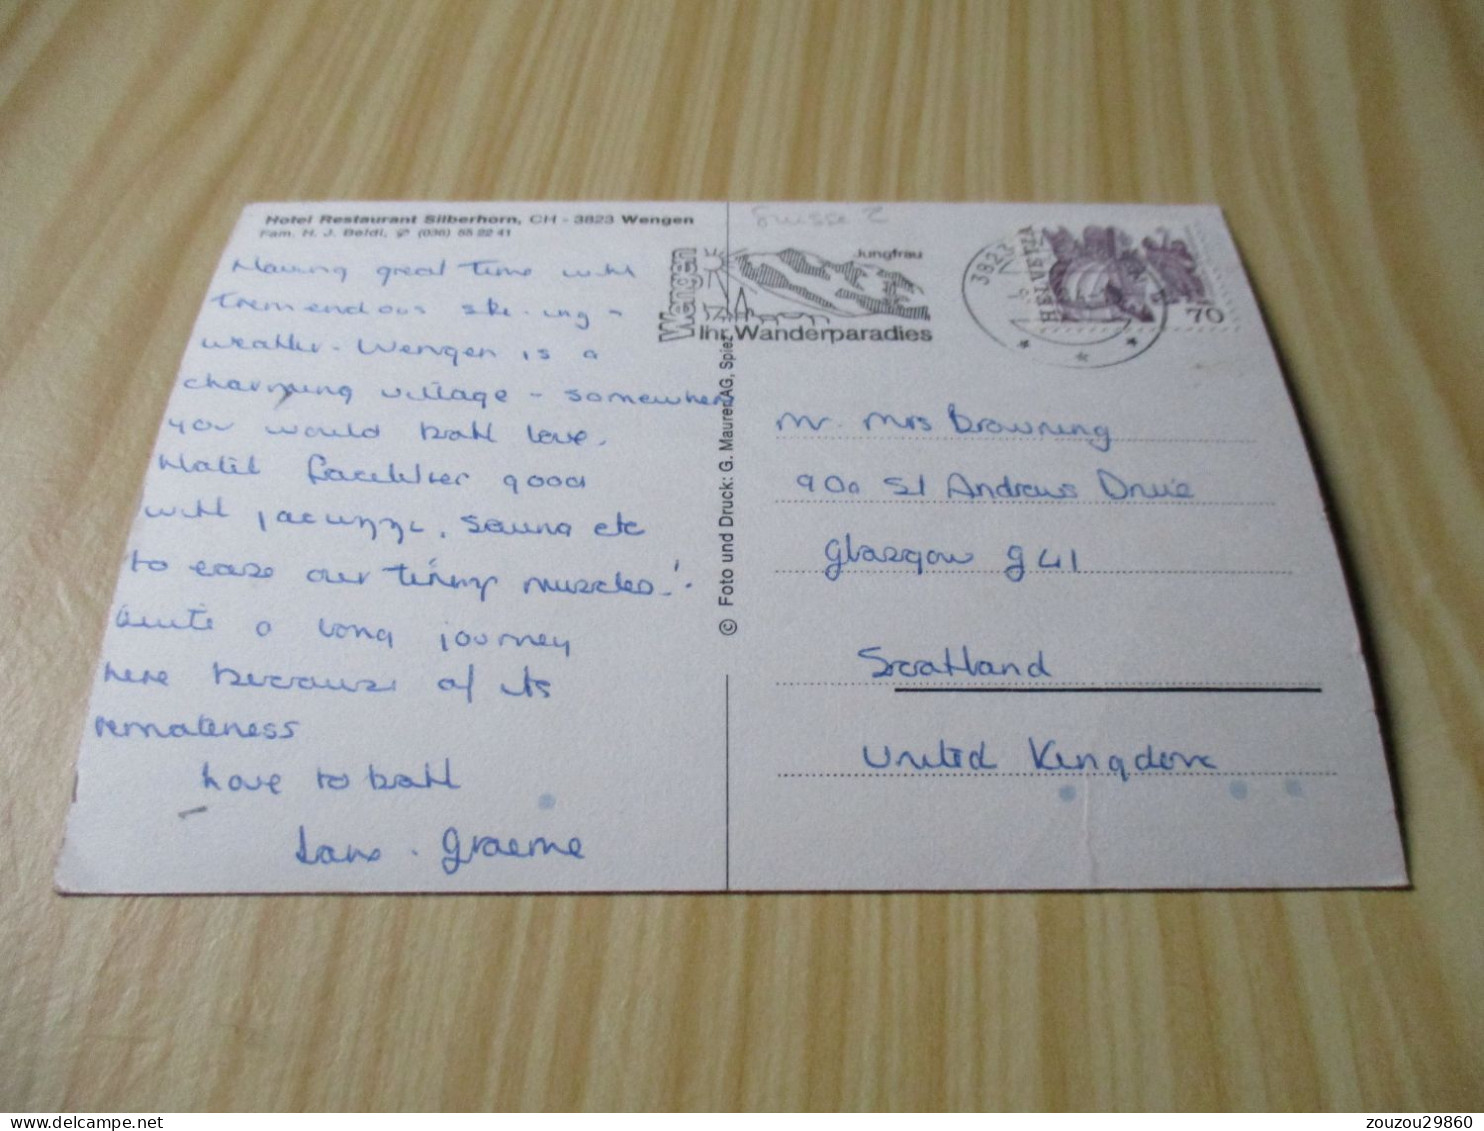 Hotel Restaurant Silberhorn, CH - 3823 Wengen
Fam. H. J. Beldi, (036) 55 22 41
Having great time with
tremendous ski-ing -
weather - Wengen is a
charming village - somewhere
you would both love.
Hotel facilities good
with jacuzzi, sauna etc
to ease our tiring muscles!
Quite a long journey
here because of its
remoteness
Love to both
Graeme
© Foto und Druck: G. Maurer AG, Spiez
Suisse 2
Wengen
Jungfrau
Ihr Wanderparadies
3823
HELVETIA
70
Mr. Mrs Browning
90a St Andrews Drive
Glasgow G41
Scotland
United Kingdom
zouzou29860